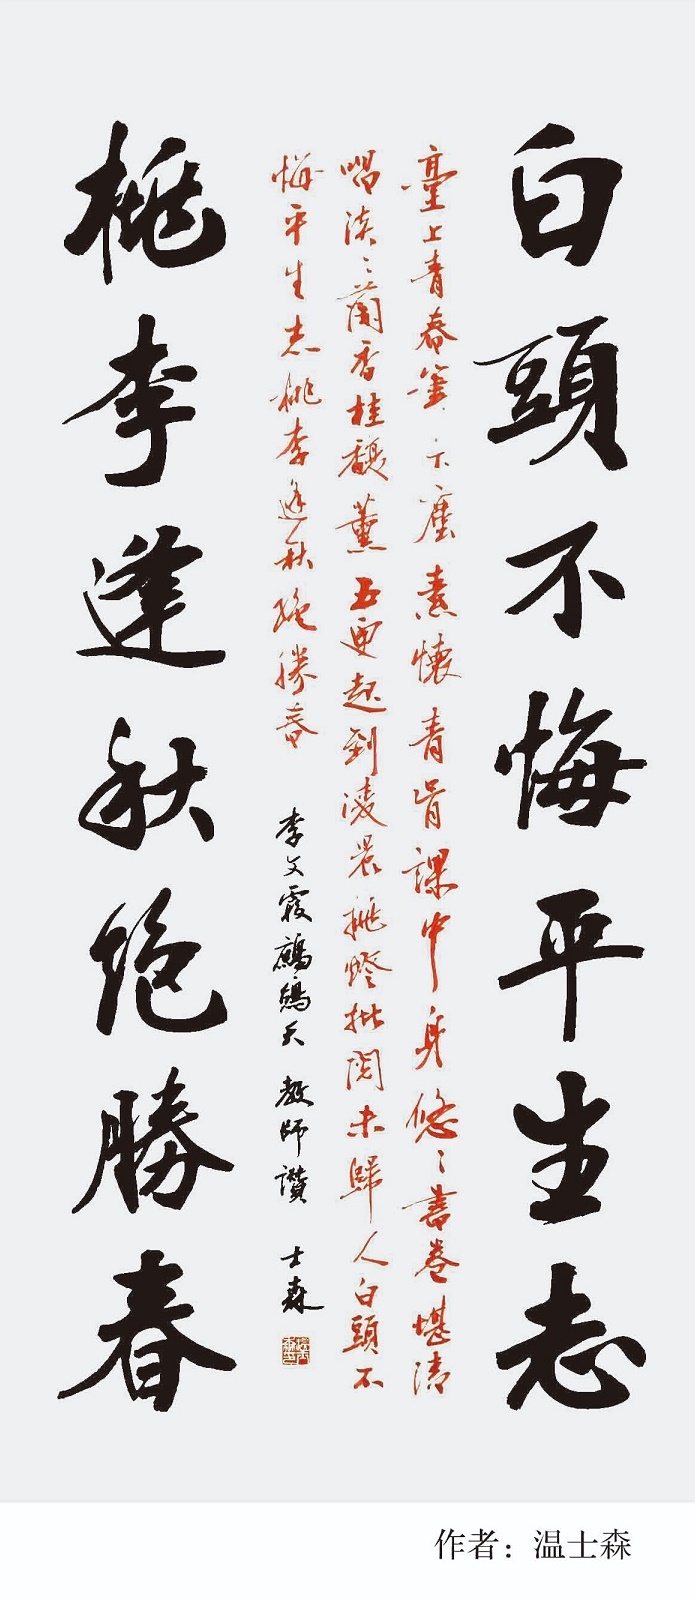 白頭不悔平生志
臺上青春筆下塵素懷青睂課中身悠〻書卷堪清
唱淡〻蘭香桂馥薰五更起到凌晨挑燈批閱未歸人白頭不
悔平生志桃李逢秋絶勝春
李文霞鷓鴣天 教師讚 士森
桃李逢秋絶勝春
作者：温士森